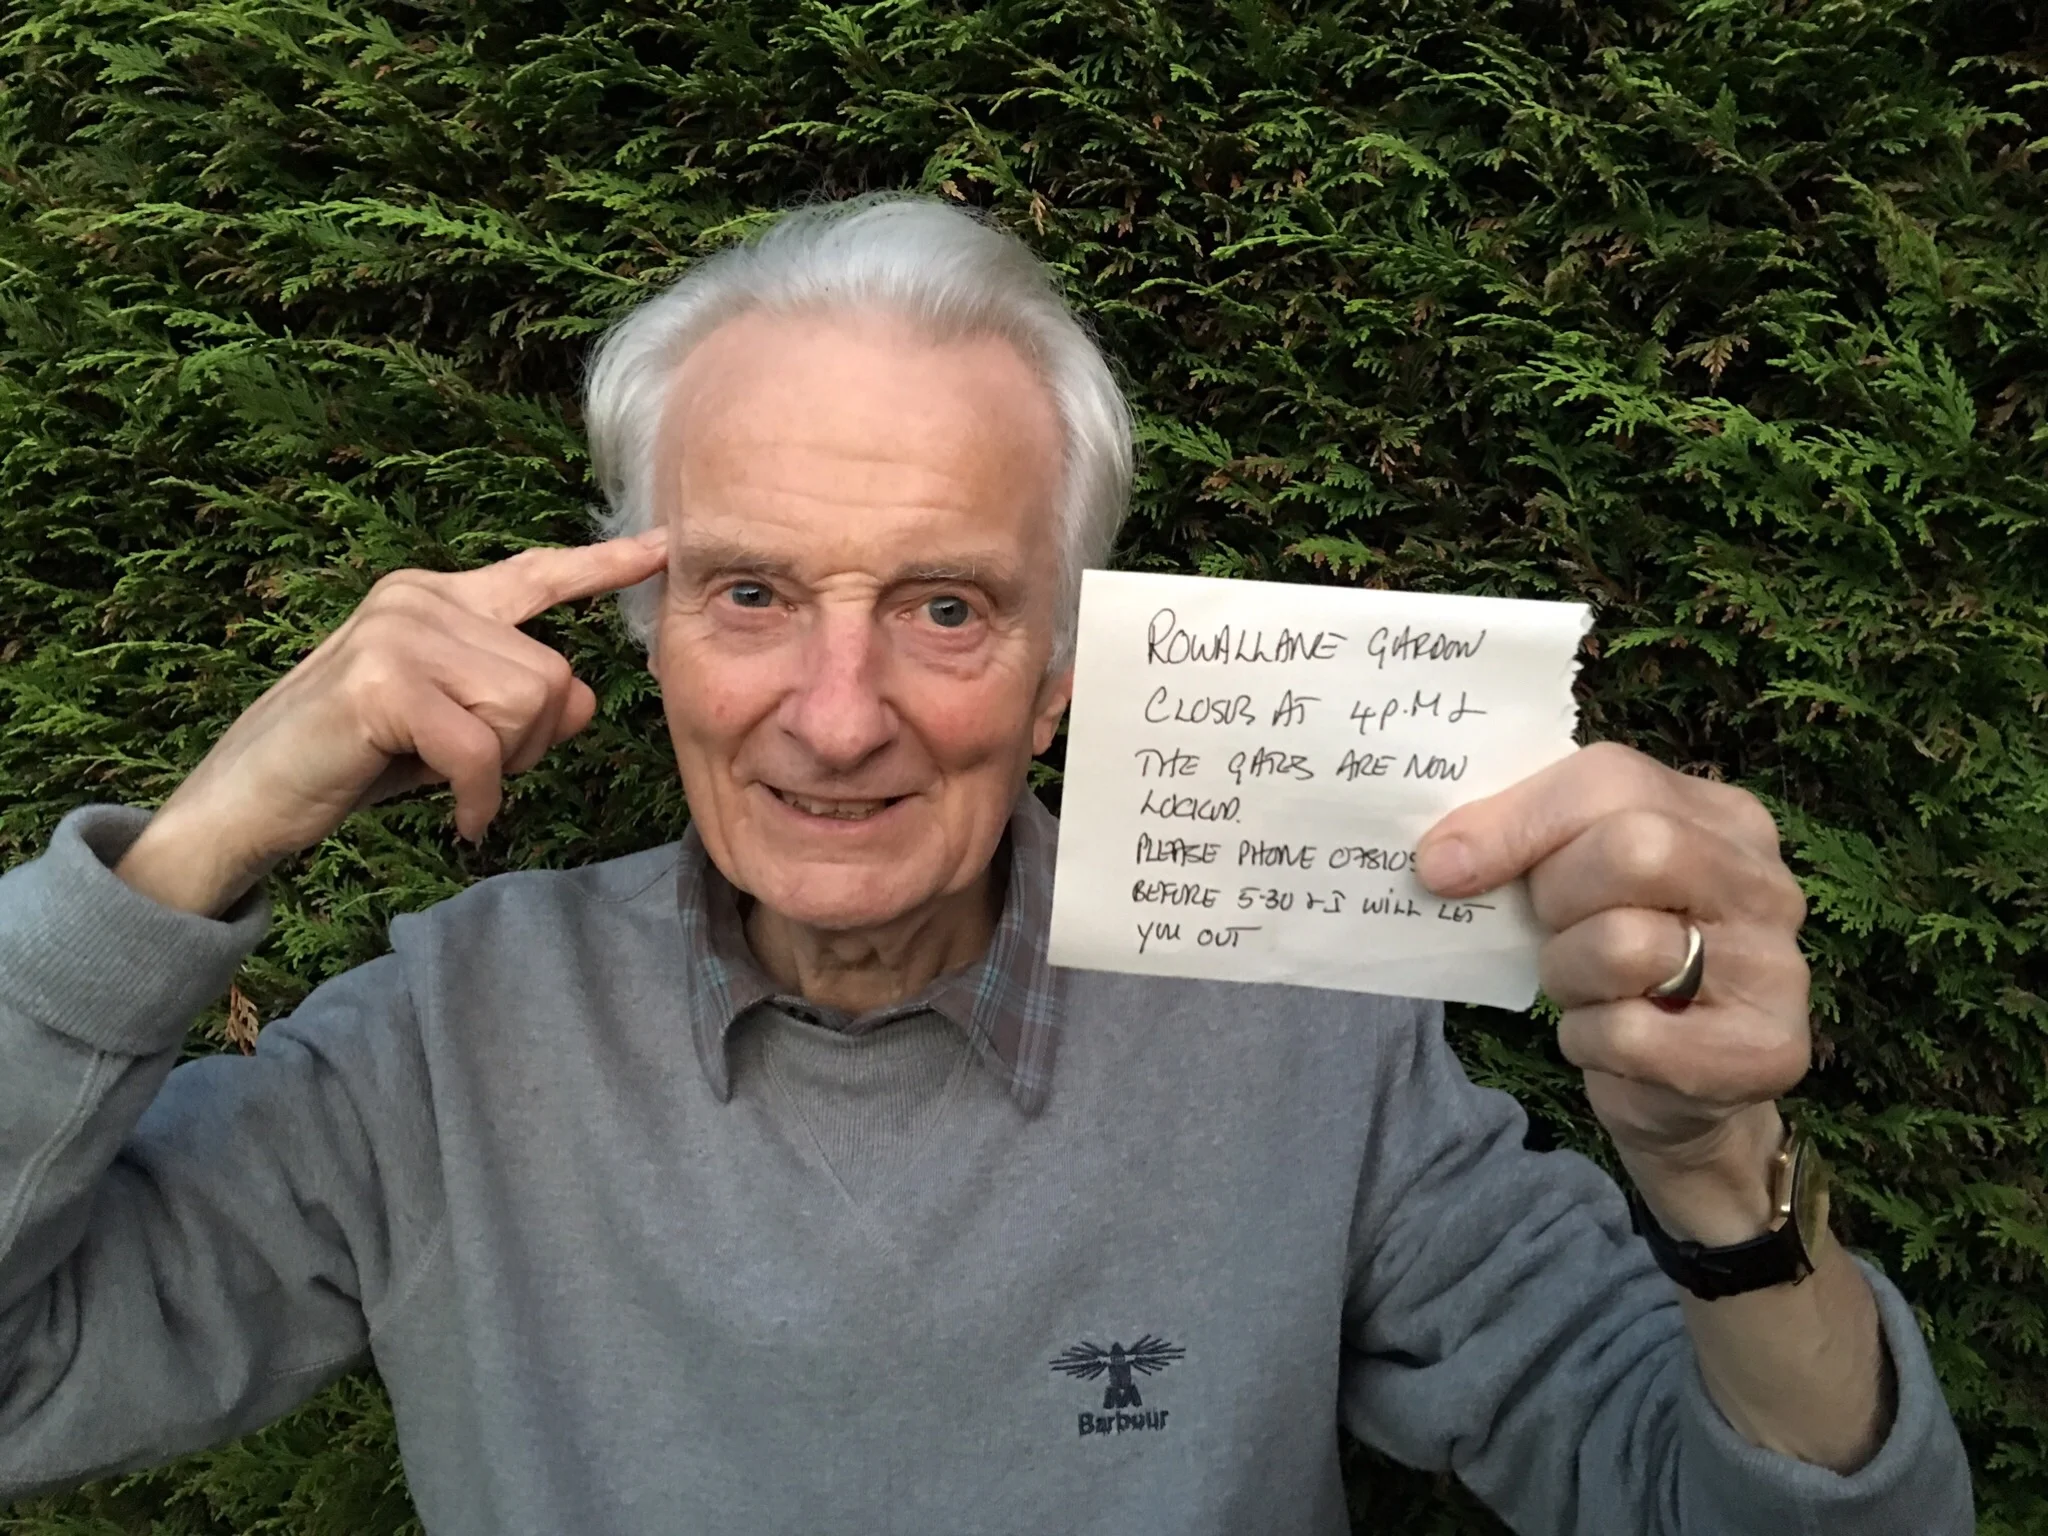 ROWALLANE GARDEN
CLOSES AT 4 P.M &
THE GATES ARE NOW
LOCKED.
PLEASE PHONE 078105
BEFORE 5-30 & I WILL LET
YOU OUT
Barbour